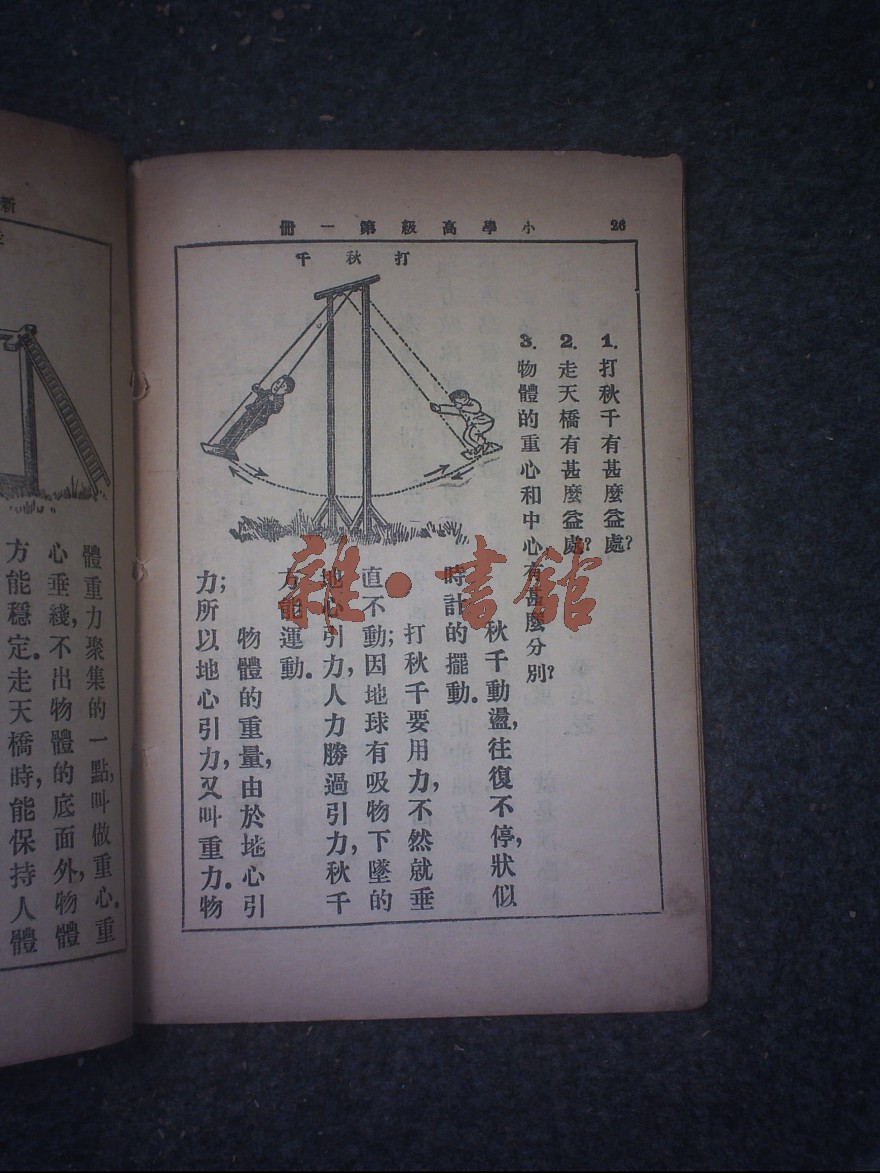 26
小學高級第一冊
1. 打秋千有甚麼益處?
2. 走天橋有甚麼益處?
3. 物體的重心和中心有甚麼分別?
打秋千
秋千動盪,往復不停,狀似
時計的擺動。
打秋千要用力,不然就垂
直不動;因地球有吸物下墜的
地心引力,人力勝過引力,秋千
方能運動。
物體的重量,由於地心引
力;所以地心引力,又叫重力。物
新
體重力聚集的一點,叫做重心。重
心垂綫,不出物體的底面外,物體
方能穩定。走天橋時,能保持人體
雜·書館